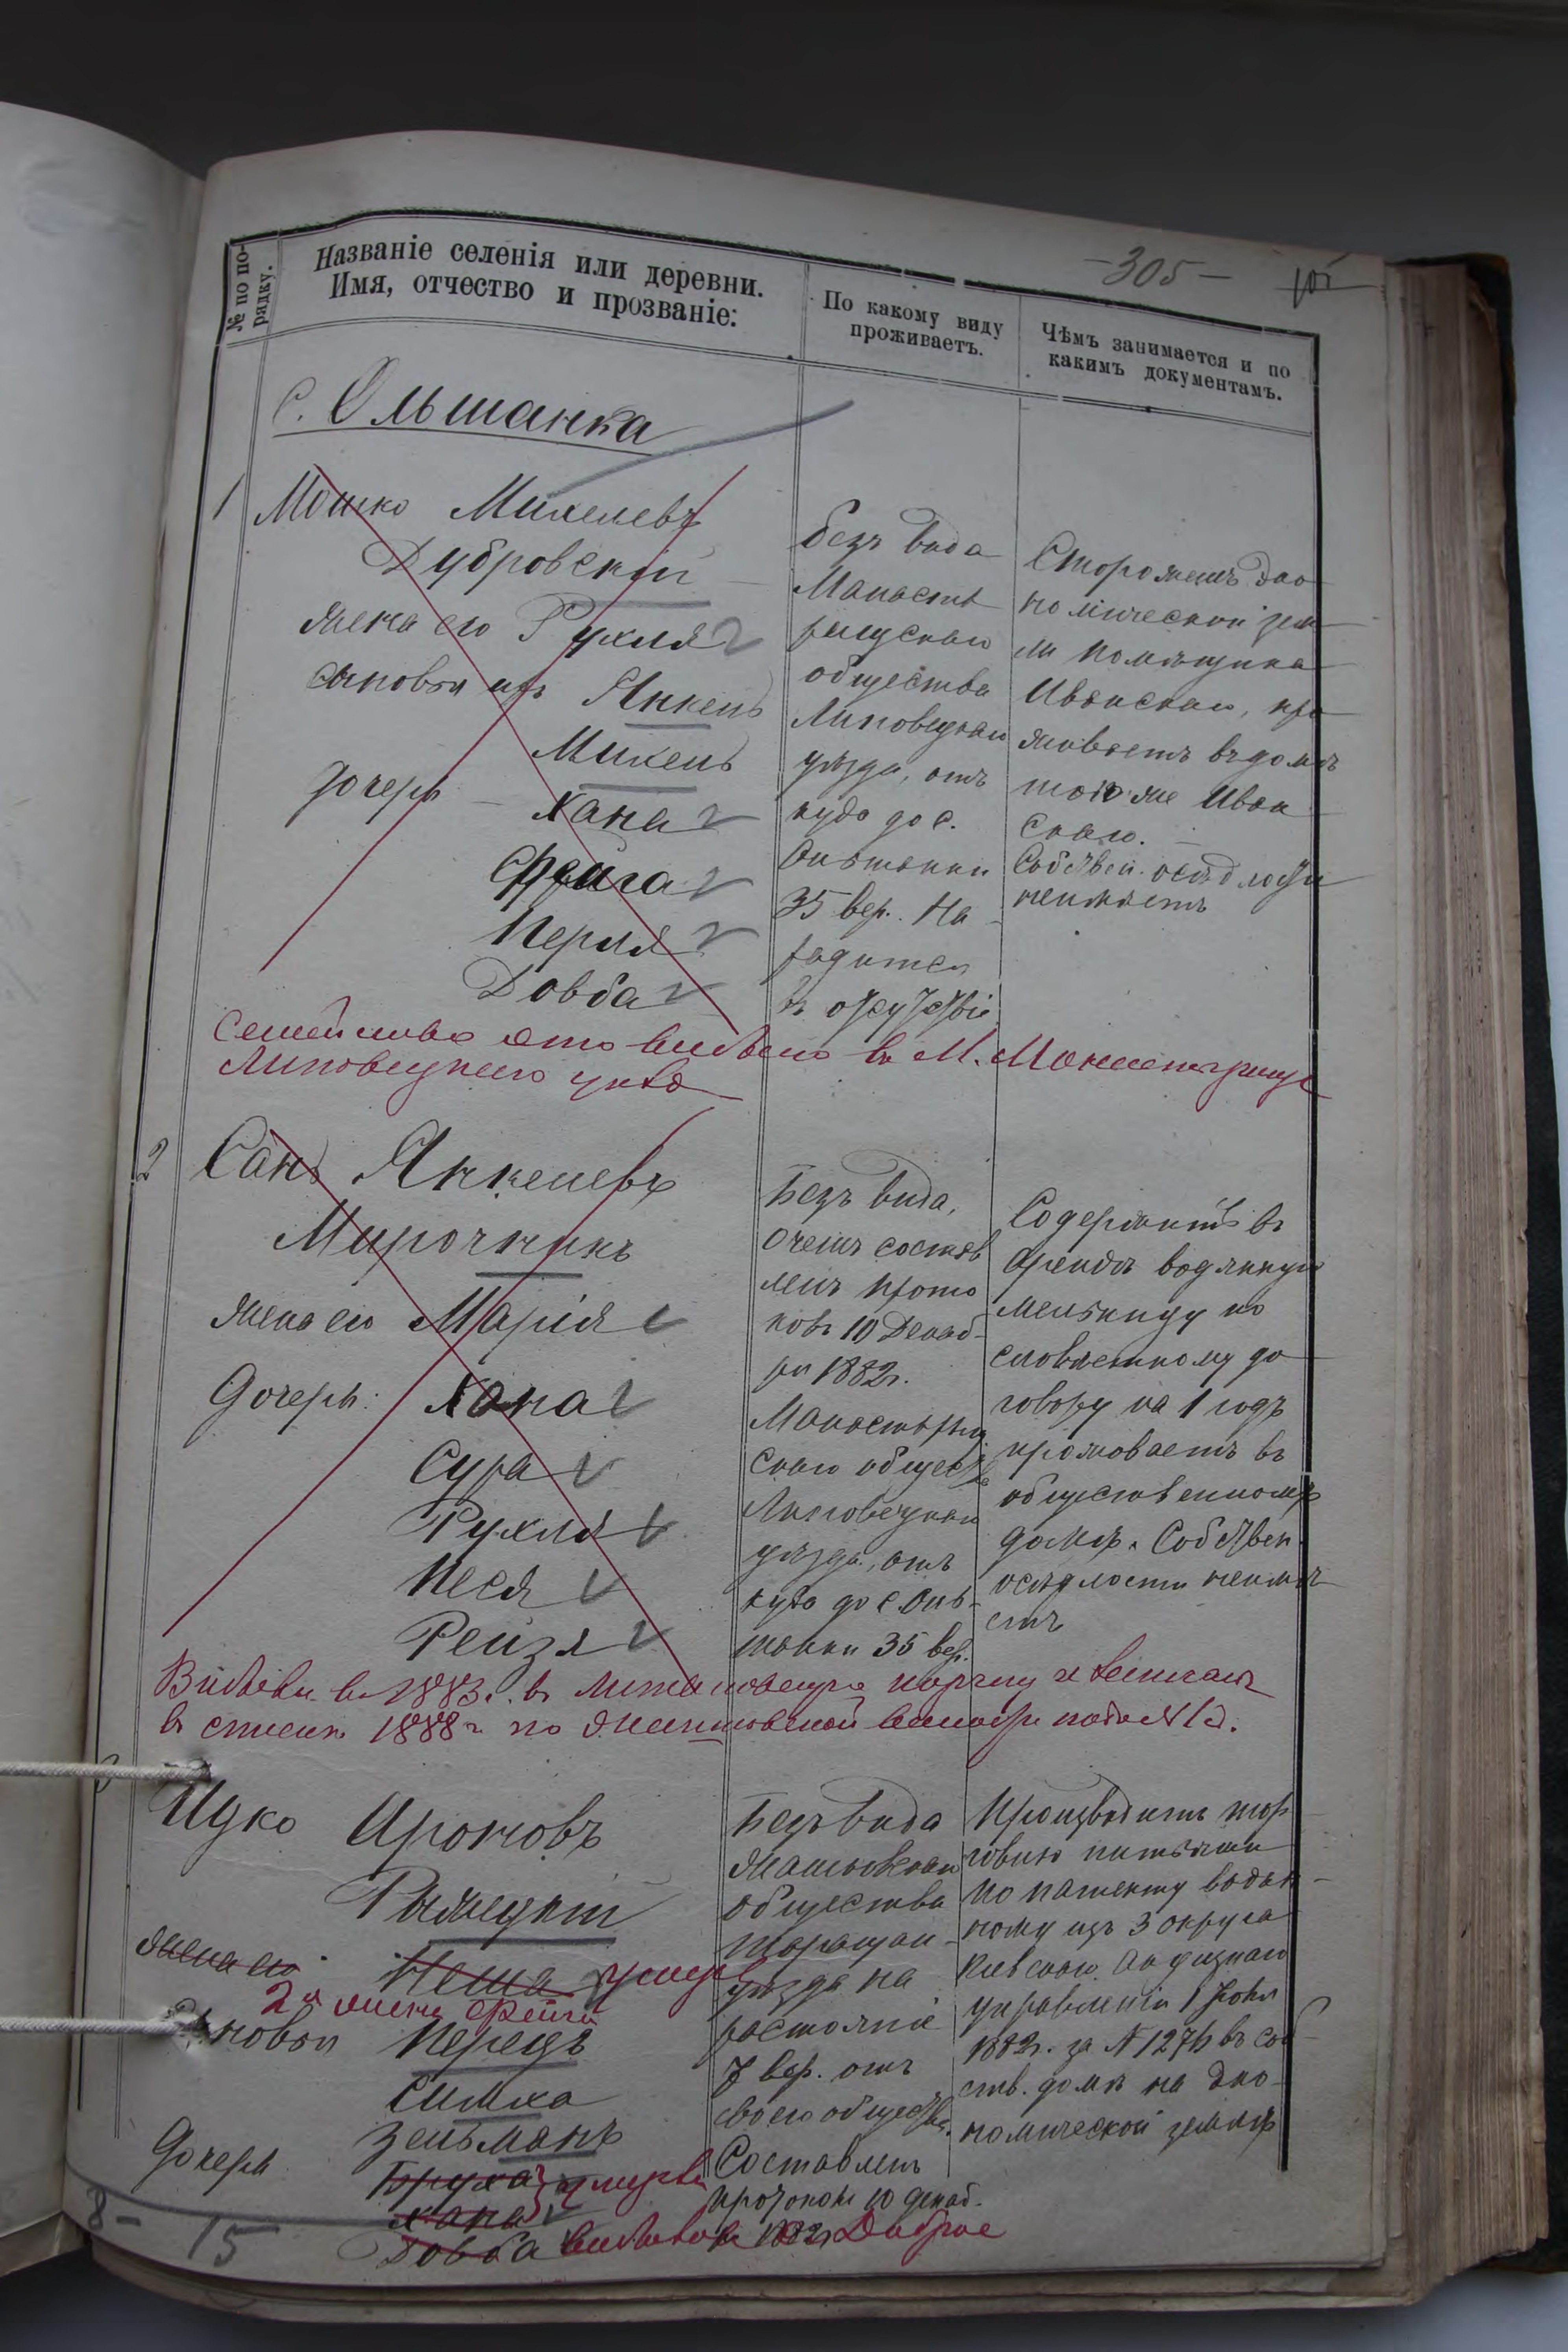 -305-
№ по по-
рядку.
Названіе селенія или деревни.
Имя, отчество и прозваніе:
По какому виду
проживаетъ.
Чѣмъ занимается и по
какимъ документамъ.
с. Ольшанка
1 Мошко Михелевъ
Дубровскій
жена его Рухля
сыновья ихъ Янкель
Михель
Дочери - Хана
Фейга
Перля
Довба
безъ вида
Манасты
рищскаго
общества
Липовецкаго
уѣзда, отъ
куда до с.
Ольшанки
35 вер. На
ходится
въ отсутствіи
Сторожемъ эко
номической зем
ли помѣщика
Иванскаго, про
живаетъ въ домѣ
того же Иван
скаго.
Собствен. осѣдлости
неимѣетъ
Семейство это выбыло в М. Монастырище
Липовецкаго уезда
2 Санъ Янкелевъ
Мирочникъ
жена его Марія
Дочери: Хана
Сура
Рухля
Песя
Рейзя
Безъ вида,
очемъ состав
ленъ прото
колъ 10 Декаб-
ря 1882г.
Манастыри
скаго общества
Липовецкаго
уѣзда, отъ
куда до с Оль-
шанки 35 вер.
Содержитъ въ
арендѣ водянную
мельницу по
словѣсному до
говору на 1 годъ
проживаетъ въ
общественномъ
домѣ. Собствен
осѣдлости неимѣ
етъ
в 1883г. в
в списки 1888 г. по волости подъ №
Ицко Ароновъ
жена его Неша умер
2я жена Фейга
Сыновья Перецъ
Симха
Зельманъ
Дочери Бруха умерла
Хана
Довба выбыла Доброе
Безъ вида
Жашковскаго
общества
Таращан
уѣзда на
растояніе
7 вер. отъ
своего общества.
Составленъ
протоколъ 10 декаб.
1882г
Производитъ тор
говлю питьями
по патенту выдан
ному изъ 3 округа
Кіевскаго Акцизнаго
управленія 1 Іюля
1882г. за № 1276 въ соб
ств. домѣ на эко-
номической землѣ
8-
15